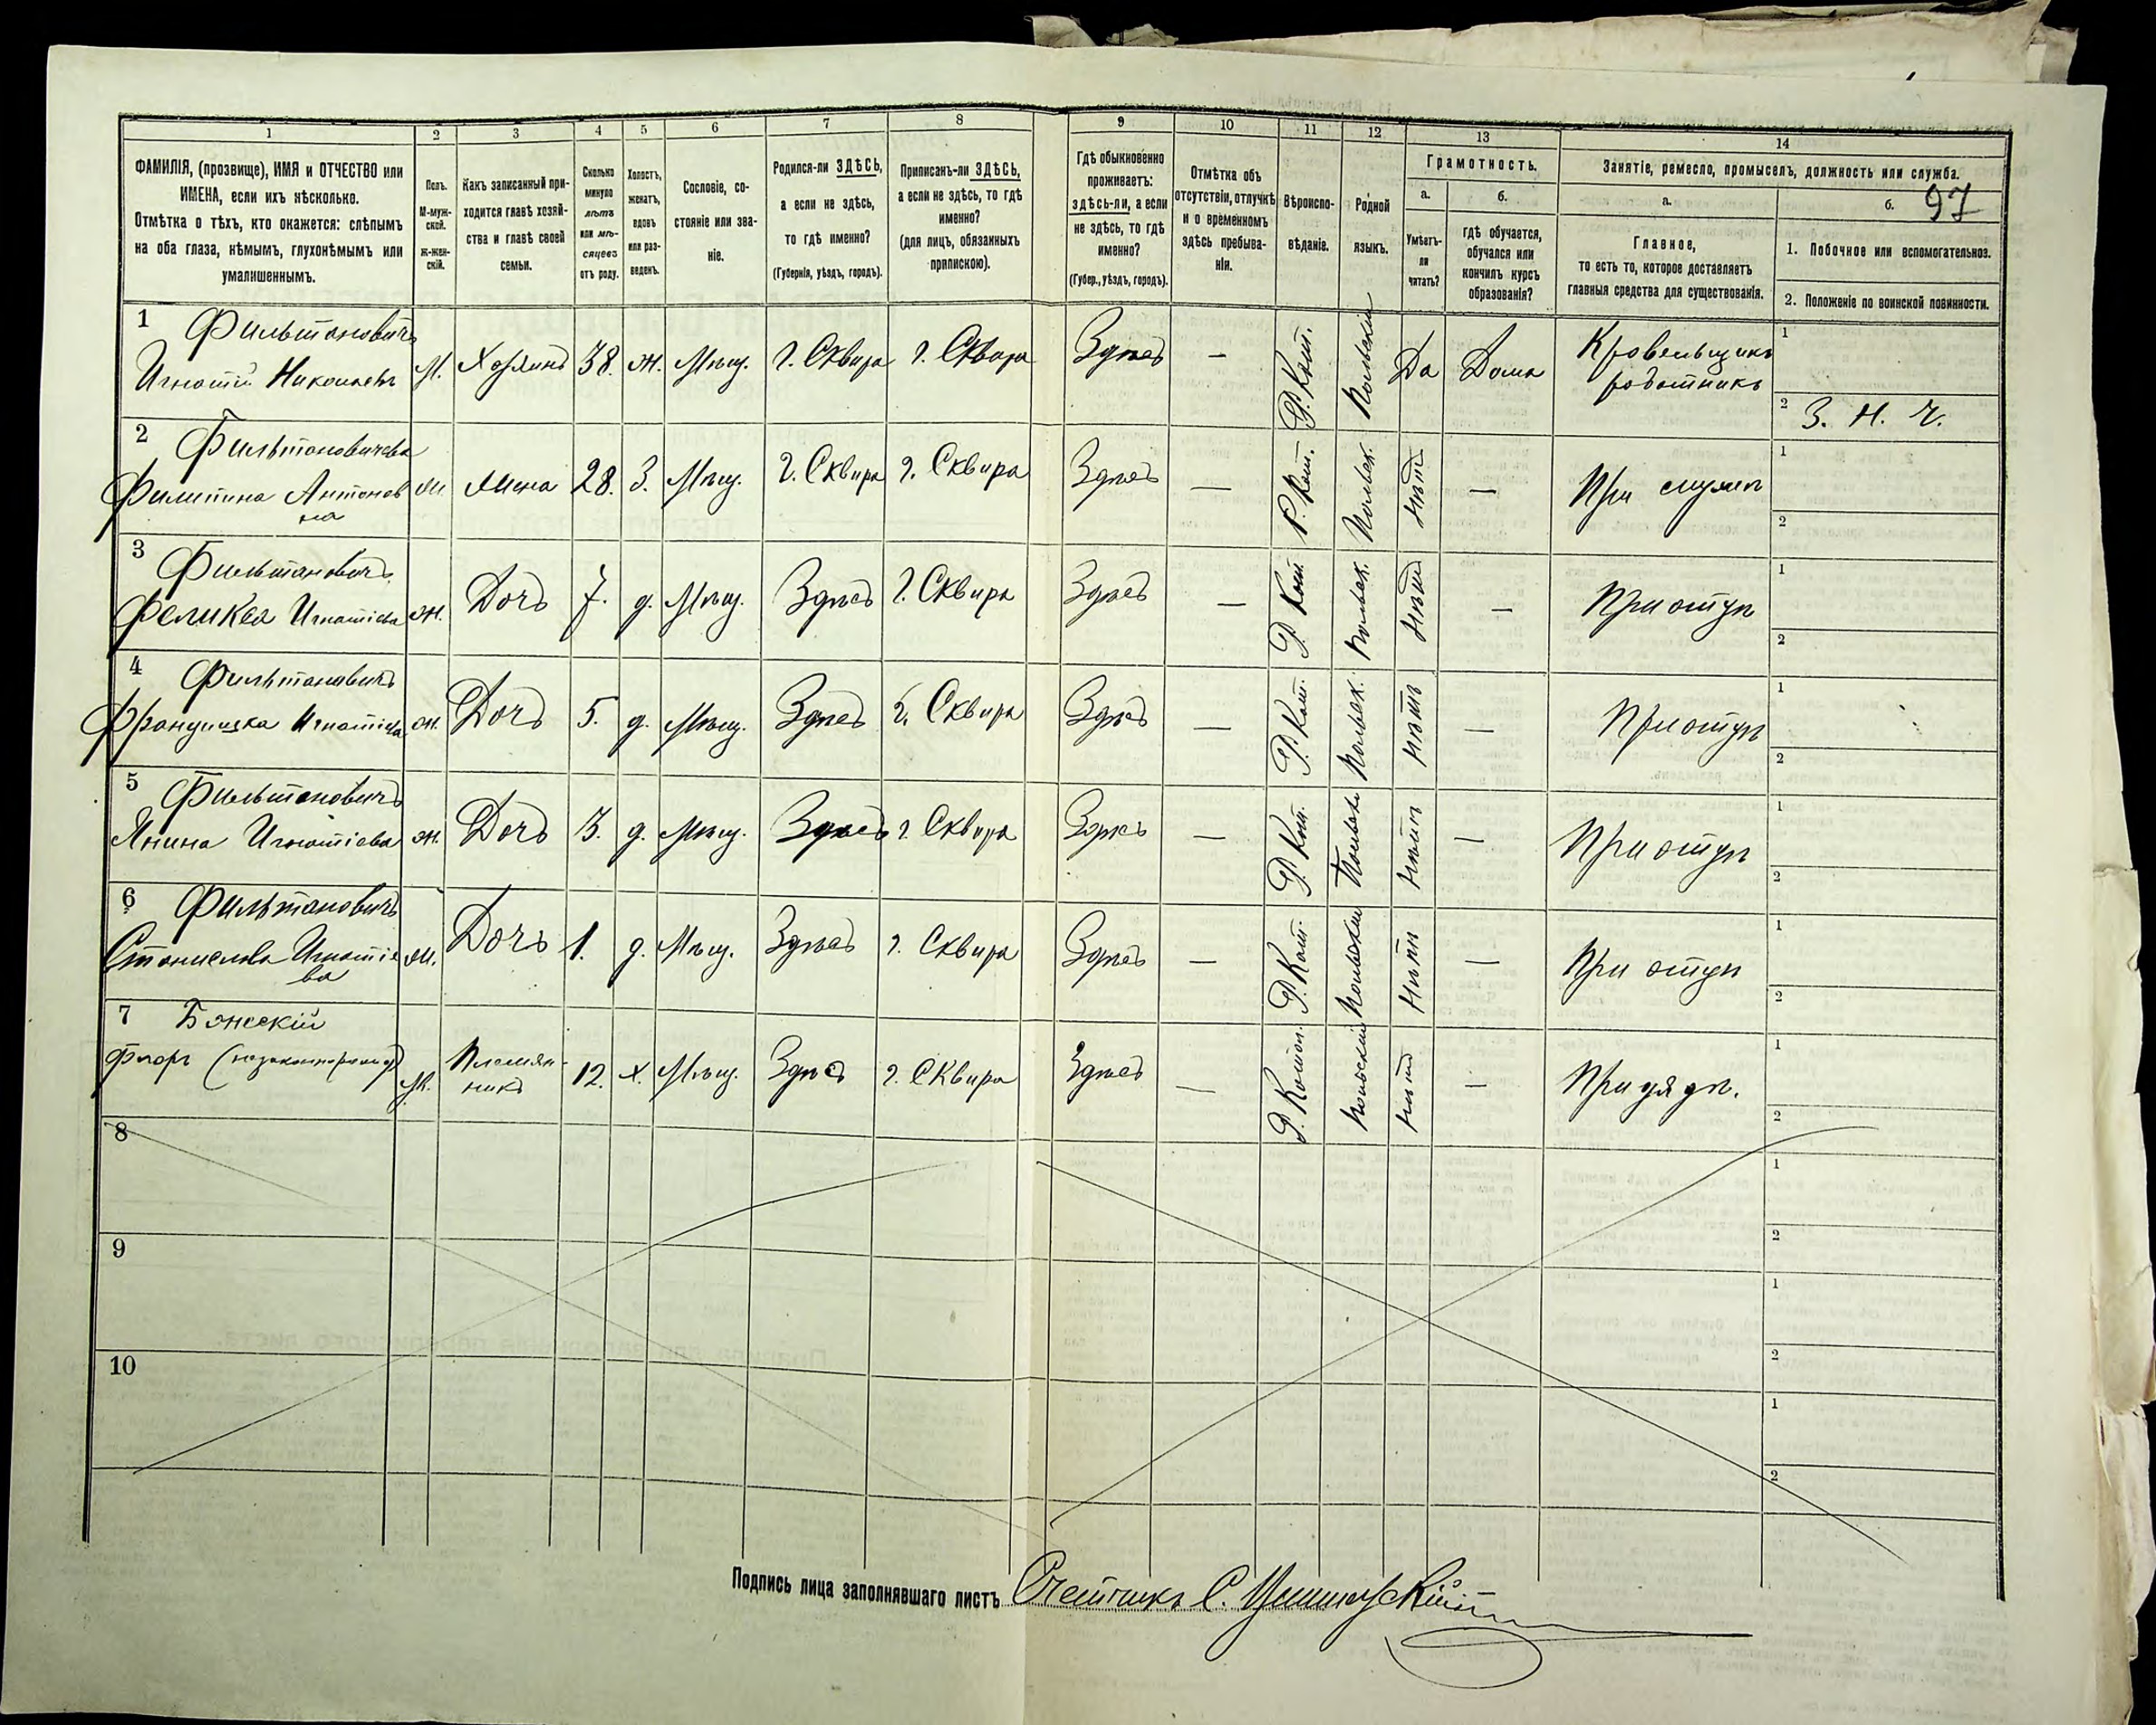 1 2 3 4 5 6 7 8 9 10 11 12 13 14
97
ФАМИЛІЯ, (прозвище), ИМЯ и ОТЧЕСТВО или
ИМЕНА, если ихъ нѣсколько.
Отмѣтка о тѣхъ, кто окажется: слѣпымъ
на оба глаза, нѣмымъ, глухонѣмымъ или
умалишеннымъ.
Полъ.
М-муж-
ской.
ж-жен-
скій.
Какъ записанный при-
ходится главѣ хозяй-
ства и главѣ своей
семьи.
Сколько
минуло
лѣтъ
или мѣ-
сяцевъ
отъ роду.
Холостъ,
женатъ,
вдовъ
или раз-
веденъ.
Сословіе, со-
стояніе или зва-
ніе.
Родился-ли ЗДѢСЬ,
а если не здѣсь,
то гдѣ именно?
(Губернія, уѣздъ, городъ).
Приписанъ-ли ЗДѢСЬ,
а если не здѣсь, то гдѣ
именно?
(для лицъ, обязанныхъ
припискою).
Гдѣ обыкновенно
проживаетъ:
здѣсь-ли, а если
не здѣсь, то гдѣ
именно?
(Губер., уѣздъ, городъ).
Отмѣтка объ
отсутствіи, отлучкѣ
и о временномъ
здѣсь пребыва-
ніи.
Вѣроиспо-
вѣданіе.
Родной
языкъ.
Грамотность.
а.
Умѣетъ-
ли
читать?
б.
гдѣ обучается,
обучался или
кончилъ курсъ
образованія?
Занятіе, ремесло, промыселъ, должность или служба.
а.
Главное,
то есть то, которое доставляетъ
главныя средства для существованія.
б.
1. Побочное или вспомогательное.
2. Положеніе по воинской повинности.
1 Фильтановичъ
Игнатій Николаевъ М. Хозяинъ 38. ж. Мѣщ. г. Сквира г. Сквира Здѣсь — Р. Кат. Польскій Да Дома Кровельщикъ
работникъ
1
2 З. Н. Ч.
2 Фильтановичева
Филипина Антонов
на ж жена 28. З. Мѣщ. г. Сквира г. Сквира Здѣсь — Р. Кат. Польск. Нѣтъ — При мужѣ
1
2
3 Фильтановичъ
Феликса Игнатіева ж. Дочь 7. д. Мѣщ. Здѣсь г. Сквира Здѣсь — Р. Кат. Польск. Нѣтъ — При отцѣ
1
2
4 Фильтановичъ
Францишка Игнатіева ж. Дочь 5. д. Мѣщ. Здѣсь г. Сквира Здѣсь — Р. Кат. Польск. Нѣтъ — При отцѣ
1
2
5 Фильтановичъ
Янина Игнатіева ж. Дочь 3. д. Мѣщ. Здѣсь г. Сквира Здѣсь — Р. Кат. Польск. Нѣтъ — При отцѣ
1
2
6 Фильтановичъ
Станислава Игнатіе
ва ж. Дочь 1. д. Мѣщ. Здѣсь г. Сквира Здѣсь — Р. Кат. Польскій Нѣтъ — При отцѣ
1
2
7
М. Племян-
никъ 12. х. Мѣщ. Здѣсь г. Сквира Здѣсь — Р. Катол. Польскій Нѣтъ — При дядѣ.
1
2
8
1
2
9
1
2
10
1
2
Подпись лица заполнявшаго листъ Счетчикъ С.